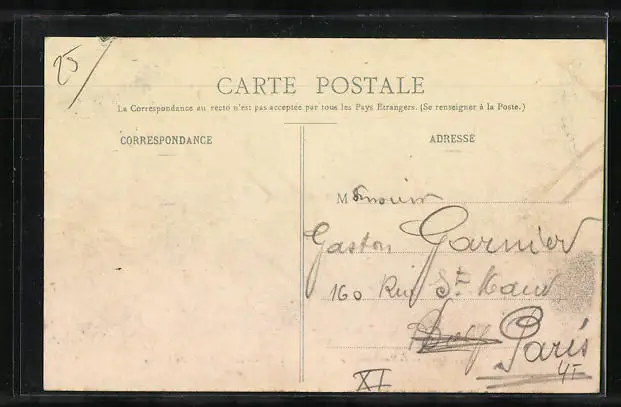 25
CARTE POSTALE
La Correspondance au recto n'est pas acceptée par tous les Pays Etrangers. (Se renseigner à la Poste.)
CORRESPONDANCE
ADRESSE
Monsieur
Gaston Garnier
160 Rue St Maur
Paris
XI